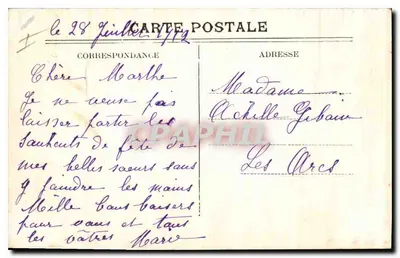 le 28 Juillet 1912
CARTE POSTALE
CORRESPONDANCE
ADRESSE
Chère Marthe
Je ne veuse pas
laisser partir les
sauhents de fête de
mes belles sœurs sans
y joindre les mains
Mille bons baisers
pour vous et tous
les vôtres Marie
Madame
Achille Gibain
Les Arcs
CPAPHIL